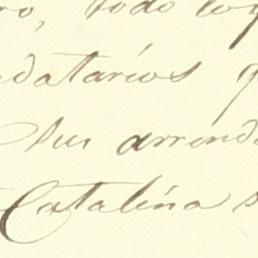 ro, todo lo
datarios q
Sus arrenda
Catalina s